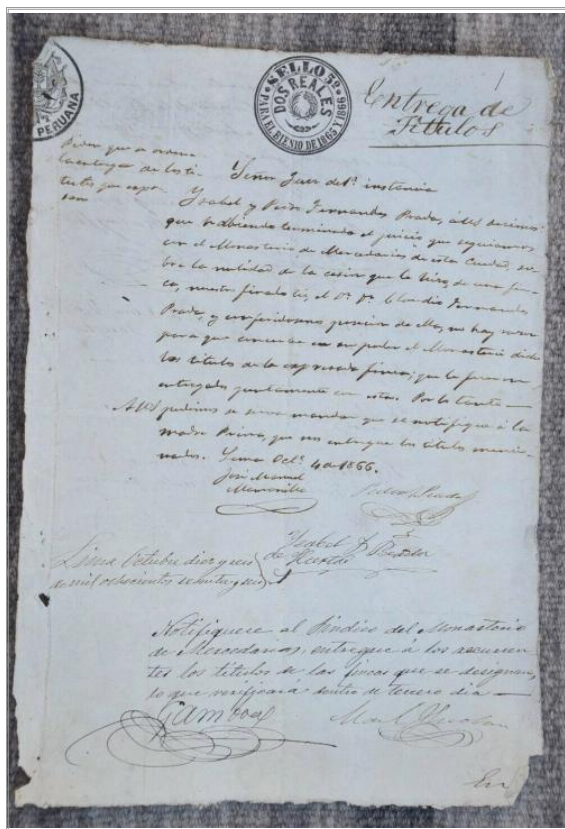 PERUANA
SELLO 3º
DOS REALES
PARA EL BIENIO DE 1865 Y 1866
Entrega de
Títulos
Piden que se ordene
la entrega de los tí-
tulos que expre-
san
Señor Juez de 1ª instancia
Ysabel y Pedro Fernandez Prada, á US decimos:
que habiendo terminado el juicio que seguiamos
con el Monasterio de Mercedarias de esta Ciudad, so-
bre la nulidad de la cesion que le hizo, de una fin-
ca, nuestro finado tio, el Dr. Dn. Claudio Fernandez
Prada, y conferidosenos posesion de ella, no hay razon
para que conserve en su poder el Monasterio dicho
los titulos de la expresada finca; que le fueron
entregados juntamente con esta. Por lo tanto
A US pedimos se sirva mandar que se notifique á la
madre Priora, que nos entregue los titulos mencio-
nados. Lima Oct. 4 de 1866.
José Manuel
Pedro Prada
Ysabel
de
Lima Octubre diez y seis
de mil ochocientos sesenta y seis
Notifiquese al Síndico del Monasterio
de Mercedarias, entregue á los recurren-
tes los títulos de las fincas que se designan,
lo que verificará dentro de tercero dia
Gamboa
En